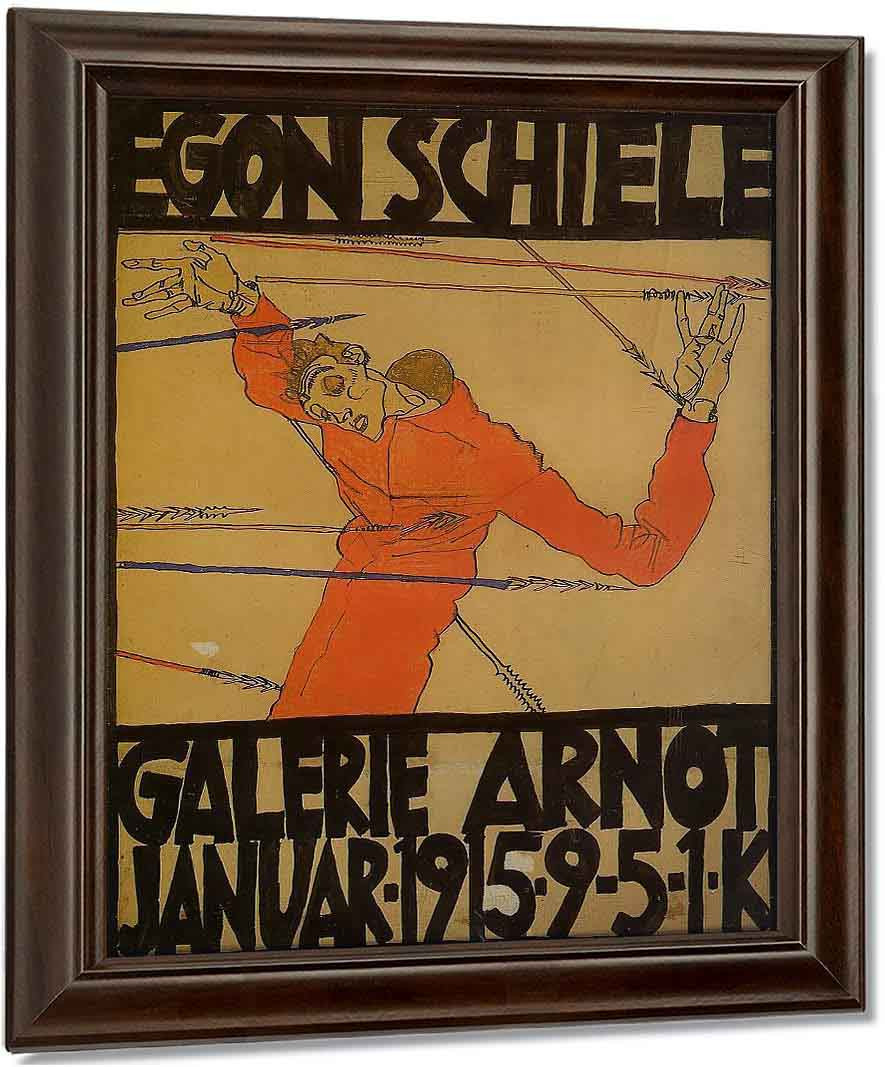 EGON SCHIELE
GALERIE ARNOT
JANUAR·1915·9-5-1·K